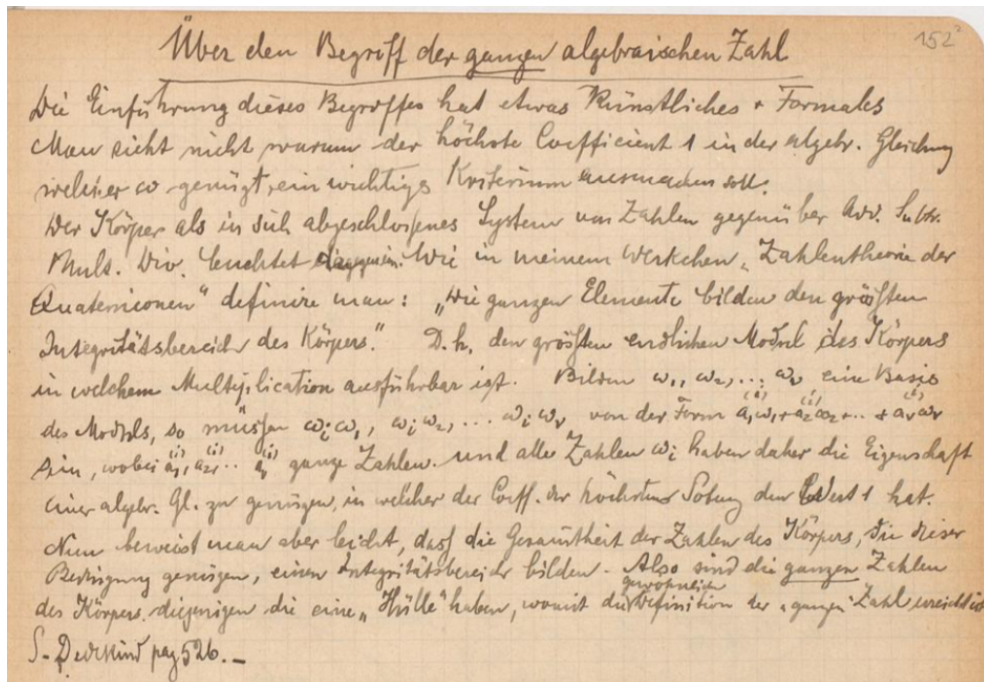 152
Über den Begriff der ganzen algebraischen Zahl
Die Einführung dieses Begriffes hat etwas Künstliches + Formales
Man sieht nicht warum der höchste Coefficient 1 in der algebr. Gleichung
welcher ω genügt, ein wichtiges Kriterium ausmachen soll.
Der Körper als in sich abgeschlossenes System von Zahlen gegenüber Add. Subtr.
Mult. Div. leuchtet dagegen ein. Wie in meinem Werkchen „Zahlentheorie der
Quaternionen" definire man: „Die ganzen Elemente bilden den größten
Integritätsbereich des Körpers." D.h. den größten endlichen Modul des Körpers
in welchem Multiplication ausführbar ist. Bilden ω₁, ω₂, ... ων eine Basis
des Moduls, so müssen ωᵢω₁, ωᵢω₂, ... ωᵢων von der Form a₁⁽ⁱ⁾ω₁+a₂⁽ⁱ⁾ω₂+... + aν⁽ⁱ⁾ων
sein, wobei a₁⁽ⁱ⁾, a₂⁽ⁱ⁾, .. aν⁽ⁱ⁾ ganze Zahlen. und alle Zahlen ωᵢ haben daher die Eigenschaft
einer algebr. Gl. zu genügen, in welcher der Coeff. der höchsten Potenz den Wert 1 hat.
Nun beweist man aber leicht, dass die Gesamtheit der Zahlen des Körpers, die dieser
Bedingung genügen, einen Integritätsbereich bilden. Also sind die ganzen Zahlen
des Körpers diejenigen die eine „Hülle" haben, womit die gewöhnliche Definition der „ganzen" Zahl erreicht ist
S. Dedekind pag 526. —